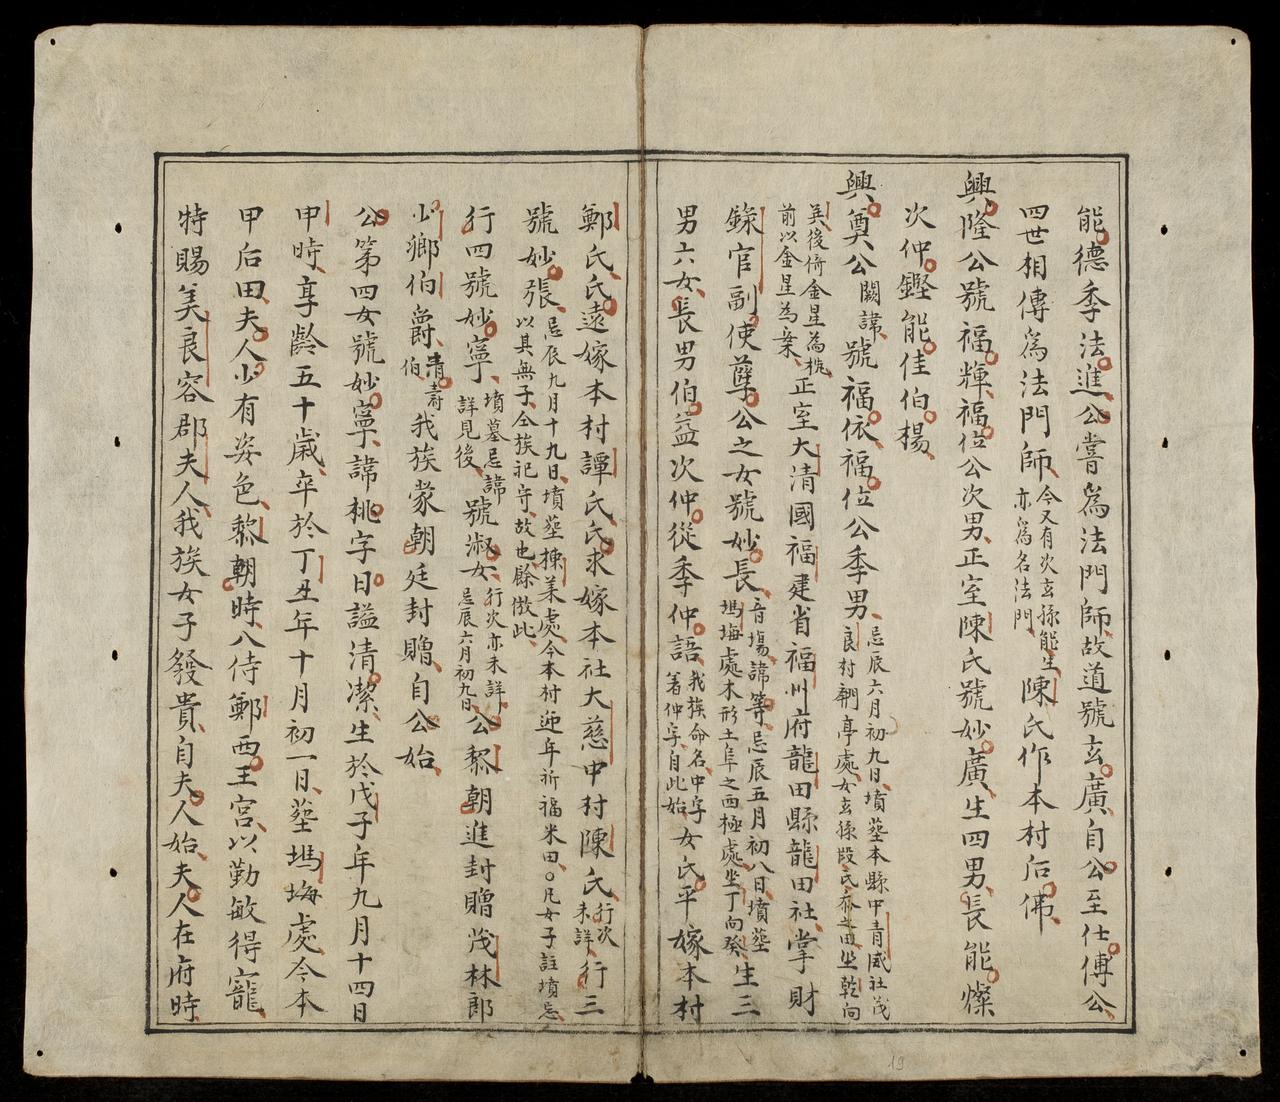 能德季法進公嘗爲法門師故道號玄廣自公至仕傅公
四世相傳爲法門師今又有次玄孫能生亦爲名法門陳氏作本村后佛
興隆公號福輝福位公次男正室陳氏號妙廣生四男長能燦
次仲鏗能佳伯楊
興奠公闕諱號福依福位公季男忌辰六月初九日墳塟本縣中青威社茂良村翶亭處女玄孫段氏夲之田坐乾向
巽後倚金星為枕前以金星為案正室大清國福建省福州府龍田縣龍田社掌財
籙官副使孽公之女號妙長音塲諱等忌辰五月初八日墳塟塢塸處木形土阜之西極處坐丁向癸生三
男六女長男伯益次仲從季仲語我族命名中字著仲字自此始女氏平嫁本村
鄭氏氏遠嫁本村譚氏氏求嫁本社大慈中村陳氏行次未詳行三
號妙張忌辰九月十九日墳塟揀某處今本村迎年祈福米田〇凡女子註墳忌以其無子仝族祀守故也餘倣此
行四號妙寧墳墓忌諱詳見後號淑女行次亦未詳忌辰六月初九日公黎朝進封贈茂林郎
少卿伯爵清壽伯我族蒙朝廷封贈自公始
公第四女號妙寧諱桃字日謚清潔生於戊子年九月十四日
申時享齡五十歲卒於丁丑年十月初一日塟塢塸處今本
甲后田夫人少有姿色黎朝時入侍鄭西王宮以勤敏得寵
特賜美良容郡夫人我族女子發貴自夫人始夫人在府時